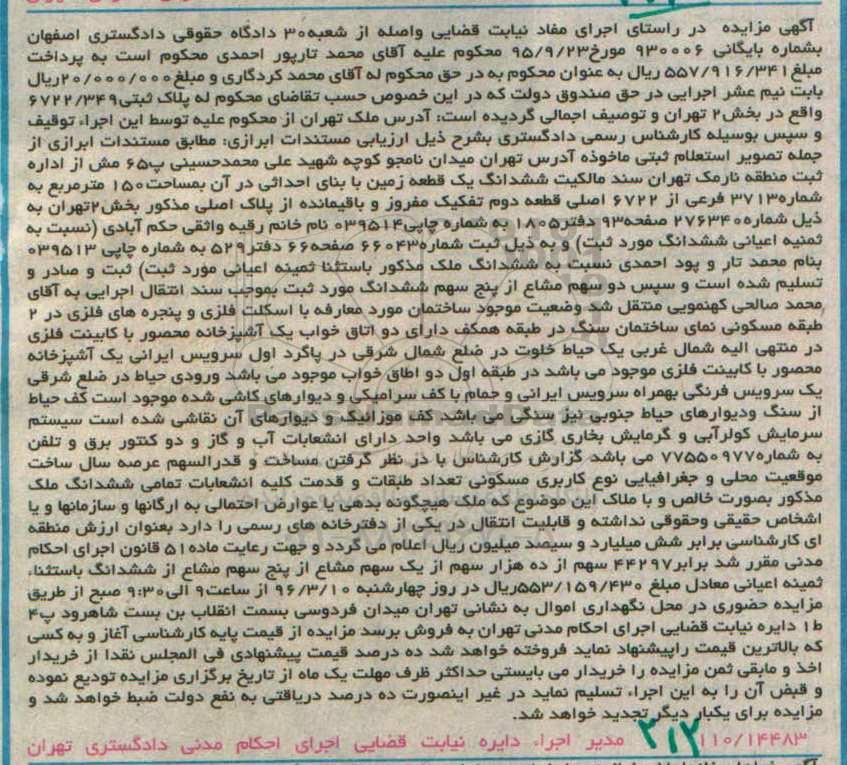 آگهی مزایده در راستای اجرای مفاد نیابت قضایی واصله از شعبه۳۰ دادگاه حقوقی دادگستری اصفهان
بشماره بایگانی ۹۳۰۰۰۶ مورخ۹۵/۹/۲۳ محکوم علیه آقای محمد تارپور احمدی محکوم است به پرداخت
مبلغ۵۵۷/۹۱۶/۳۴۱ ریال به عنوان محکوم به در حق محکوم له آقای محمد کردگاری و مبلغ۲۰/۰۰۰/۰۰۰ریال
بابت نیم عشر اجرایی در حق صندوق دولت که در این خصوص حسب تقاضای محکوم له پلاک ثبتی۶۷۲۲/۳۴۹
واقع در بخش۲ تهران و توصیف اجمالی گردیده است: آدرس ملک تهران از محکوم علیه توسط این اجراء توقیف
و سپس بوسیله کارشناس رسمی دادگستری بشرح ذیل ارزیابی مستندات ابرازی: مطابق مستندات ابرازی از
جمله تصویر استعلام ثبتی ماخوذه آدرس تهران میدان نامجو کوچه شهید علی محمدحسینی پ۶۵ مش از اداره
ثبت منطقه نارمک تهران سند مالکیت ششدانگ یک قطعه زمین با بنای احداثی در آن بمساحت۱۵۰ مترمربع به
شماره۳۷۱۳ فرعی از ۶۷۲۲ اصلی قطعه دوم تفکیک مفروز و باقیمانده از پلاک اصلی مذکور بخش۲تهران به
ذیل شماره۲۷۶۳۴۰ صفحه۹۳ دفتر۱۸۰۵ به شماره چاپی۰۳۹۵۱۴ نام خانم رقیه واثقی حکم آبادی (نسبت به
ثمنیه اعیانی ششدانگ مورد ثبت) و به ذیل ثبت شماره۶۶۰۴۳ صفحه۶۶ دفتر۵۲۹ به شماره چاپی ۰۳۹۵۱۳
بنام محمد تار و پود احمدی نسبت به ششدانگ ملک مذکور باستثنا ثمینه اعیانی مورد ثبت) ثبت و صادر و
تسلیم شده است و سپس دو سهم مشاع از پنج سهم ششدانگ مورد ثبت بموجب سند انتقال اجرایی به آقای
محمد صالحی کهنمویی منتقل شد وضعیت موجود ساختمان مورد معارفه با اسکلت فلزی و پنجره های فلزی در ۲
طبقه مسکونی نمای ساختمان سنگ در طبقه همکف دارای دو اتاق خواب یک آشپزخانه محصور با کابینت فلزی
در منتهی الیه شمال غربی یک حیاط خلوت در ضلع شمال شرقی در پاگرد اول سرویس ایرانی یک آشپزخانه
محصور با کابینت فلزی موجود می باشد در طبقه اول دو اطاق خواب موجود می باشد ورودی حیاط در ضلع شرقی
یک سرویس فرنگی بهمراه سرویس ایرانی و حمام با کف سرامیکی و دیوارهای کاشی شده موجود است کف حیاط
از سنگ ودیوارهای حیاط جنوبی نیز سنگی می باشد کف موزائیک و دیوارهای آن نقاشی شده است سیستم
سرمایش کولرآبی و گرمایش بخاری گازی می باشد واحد دارای انشعابات آب و گاز و دو کنتور برق و تلفن
به شماره۷۷۵۵۰۹۷۷ می باشد گزارش کارشناس با در نظر گرفتن مساحت و قدرالسهم عرصه سال ساخت
موقعیت محلی و جغرافیایی نوع کاربری مسکونی تعداد طبقات و قدمت کلیه انشعابات تمامی ششدانگ ملک
مذکور بصورت خالص و با ملاک این موضوع که ملک هیچگونه بدهی یا عوارض احتمالی به ارگانها و سازمانها و یا
اشخاص حقیقی وحقوقی نداشته و قابلیت انتقال در یکی از دفترخانه های رسمی را دارد بعنوان ارزش منطقه
ای کارشناسی برابر شش میلیارد و سیصد میلیون ریال اعلام می گردد و جهت رعایت ماده۵۱ قانون اجرای احکام
مدنی مقرر شد برابر۴۴۲۹۷ سهم از ده هزار سهم از یک سهم مشاع از پنج سهم مشاع از ششدانگ باستثناء
ثمینه اعیانی معادل مبلغ ۵۵۳/۱۵۹/۴۳۰ریال در روز چهارشنبه ۹۶/۳/۱۰ از ساعت۹ الی۹:۳۰ صبح از طریق
مزایده حضوری در محل نگهداری اموال به نشانی تهران میدان فردوسی بسمت انقلاب بن بست شاهرود پ۴
ط۱ دایره نیابت قضایی اجرای احکام مدنی تهران به فروش برسد مزایده از قیمت پایه کارشناسی آغاز و به کسی
که بالاترین قیمت راپیشنهاد نماید فروخته خواهد شد ده درصد قیمت پیشنهادی فی المجلس نقدا از خریدار
اخذ و مابقی ثمن مزایده را خریدار می بایستی حداکثر ظرف مهلت یک ماه از تاریخ برگزاری مزایده تودیع نموده
و قبض آن را به این اجراء تسلیم نماید در غیر اینصورت ده درصد دریافتی به نفع دولت ضبط خواهد شد و
مزایده برای یکبار دیگر تجدید خواهد شد.
۱۱۰/۱۴۴۸۳ ۳۱۲ مدیر اجراء دایره نیابت قضایی اجرای احکام مدنی دادگستری تهران